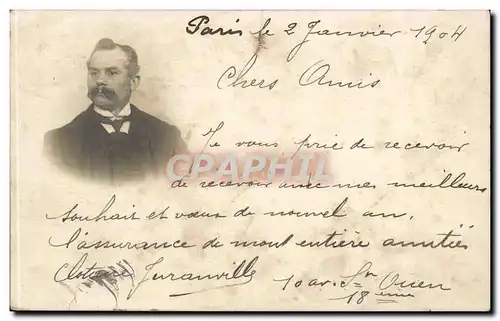 Paris le 2 Janvier 1904
Chers Amis
Je vous prie de recevoir
CPARPHIL
de recevoir avec mes meilleurs
Souhait et vœux de nouvel an,
l'assurance de mont entière amitiés
Clotaire Juranville
10 av. St Ouen
18ème